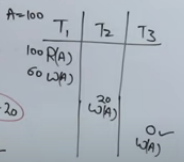 A=100
T₁ T₂ T₃
100 R(A)
60 W(A)
20
W(A)
-20
0
W(A)